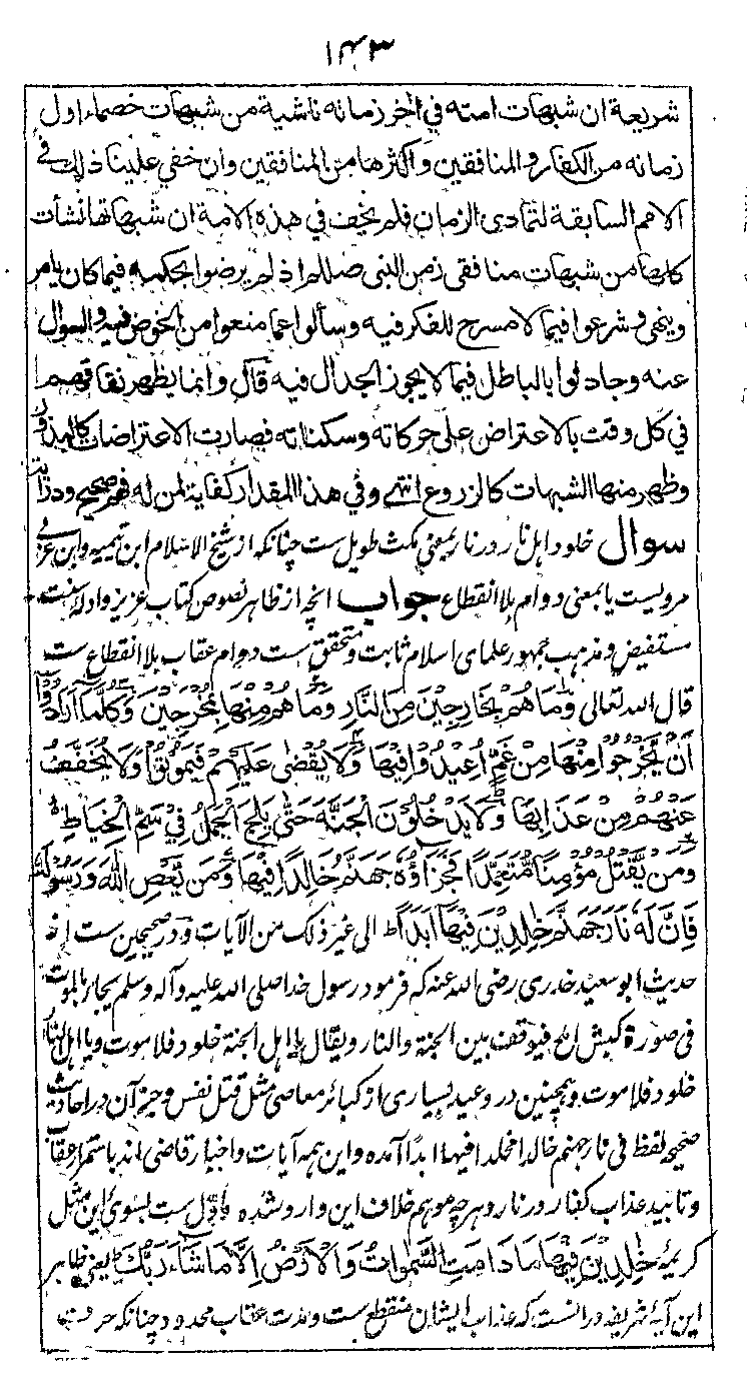 ۱۴۳
شریعة ان شبهات امته في اخر زمانه ناشية من شبهات خصماء اول
زمانه من الكفار والمنافقين واكثرها من المنافقين وان خفي علينا ذلك في
الامم السابقة لتمادى الزمان فلم يخف في هذه الامة ان شبهاتها نشأت
كلها من شبهات منافقى زمن النبى صللم اذ لم يرضوا بحكمه فيما كان يأمر
وينهى وشرعوا فيما لا مسرح للفكر فيه وسألوا عما منعوا من الخوض فيه والسوال
عنه وجادلوا بالباطل فيما لا يجوز الجدال فيه قال وانما يظهر نفاقهم
في كل وقت بالاعتراض على حركاته وسكناته فصارت الاعتراضات كالبذور
وظهر منها الشبهات كالزروع انتهى وفي هذا المقدار كفاية لمن له فهم صحيح ودراية
سوال خلود اہل نار در نار بمعنی مکث طویل ست چنانکه از شیخ الاسلام ابن تیمیه وابن عربی
مرویست یا بمعنی دوام بلا انقطاع جواب انچه از ظاہر نصوص کتاب عزیز وادلهٔ سنت
مستفیض ومذہب جمہور علمای اسلام ثابت ومتحقق ست دوام عقاب بلا انقطاع ست
قال الله تعالى وَمَا هُمْ بِخَارِجِيْنَ مِنَ النَّارِ وَمَا هُمْ مِنْهَا بِمُخْرَجِيْنَ وَكُلَّمَا اَرَادُوْا
اَنْ يَّخْرُجُوْا مِنْهَا مِنْ غَمٍّ اُعِيْدُوْا فِيْهَا وَلَا يُقْضٰى عَلَيْهِمْ فَيَمُوْتُوْا وَلَا يُخَفَّفُ
عَنْهُمْ مِنْ عَذَابِهَا وَلَا يَدْخُلُوْنَ الْجَنَّةَ حَتّٰى يَلِجَ الْجَمَلُ فِيْ سَمِّ الْخِيَاطِ
وَمَنْ يَّقْتُلْ مُؤْمِنًا مُّتَعَمِّدًا فَجَزَاؤُهٗ جَهَنَّمُ خَالِدًا فِيْهَا وَمَنْ يَّعْصِ اللّٰهَ وَرَسُوْلَهٗ
فَاِنَّ لَهٗ نَارَ جَهَنَّمَ خٰلِدِيْنَ فِيْهَا اَبَدًا الى غير ذلك من الآيات ودر صحیحین ست از
حدیث ابو سعید خدری رضی الله عنه که فرمود رسول خدا صلی الله علیه وآله وسلم یجاء بالموت
فی صورة کبش املح فیوقف بین الجنة والنار ویقال یا اهل الجنة خلود فلا موت ویا اهل النار
خلود فلا موت وہمچنین در وعید بسیاری از کبائر معاصی مثل قتل نفس وجز آن در احادیث
صحیحه لفظ فی نار جہنم خالدا مخلدا فیها ابدًا آمده واین همه آیات واخبار قاضی اند باستمرار عقاب
وتابید عذاب کفار در نار وہر چه موہم خلاف این وارد شده مأوّل ست بسوی این مثل
کریمهٔ خٰلِدِيْنَ فِيْهَا مَا دَامَتِ السَّمٰوَاتُ وَالْاَرْضُ اِلَّا مَا شَآءَ رَبُّكَ یعنی ظاہر
این آیهٔ شریفه در انست که عذاب ایشان منقطع ست ومدت عقاب محدود چنانکه